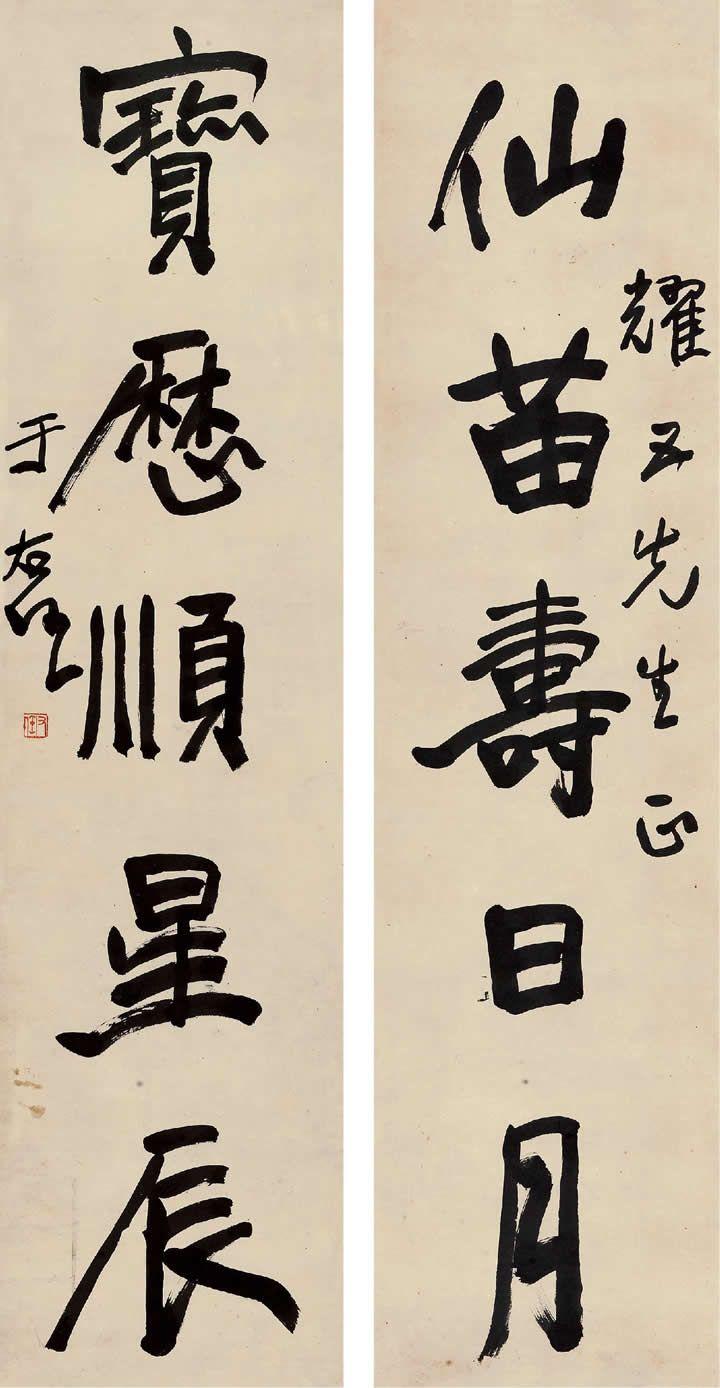 仙苗壽日月
耀五先生正
寶歷順星辰
于右任
右任